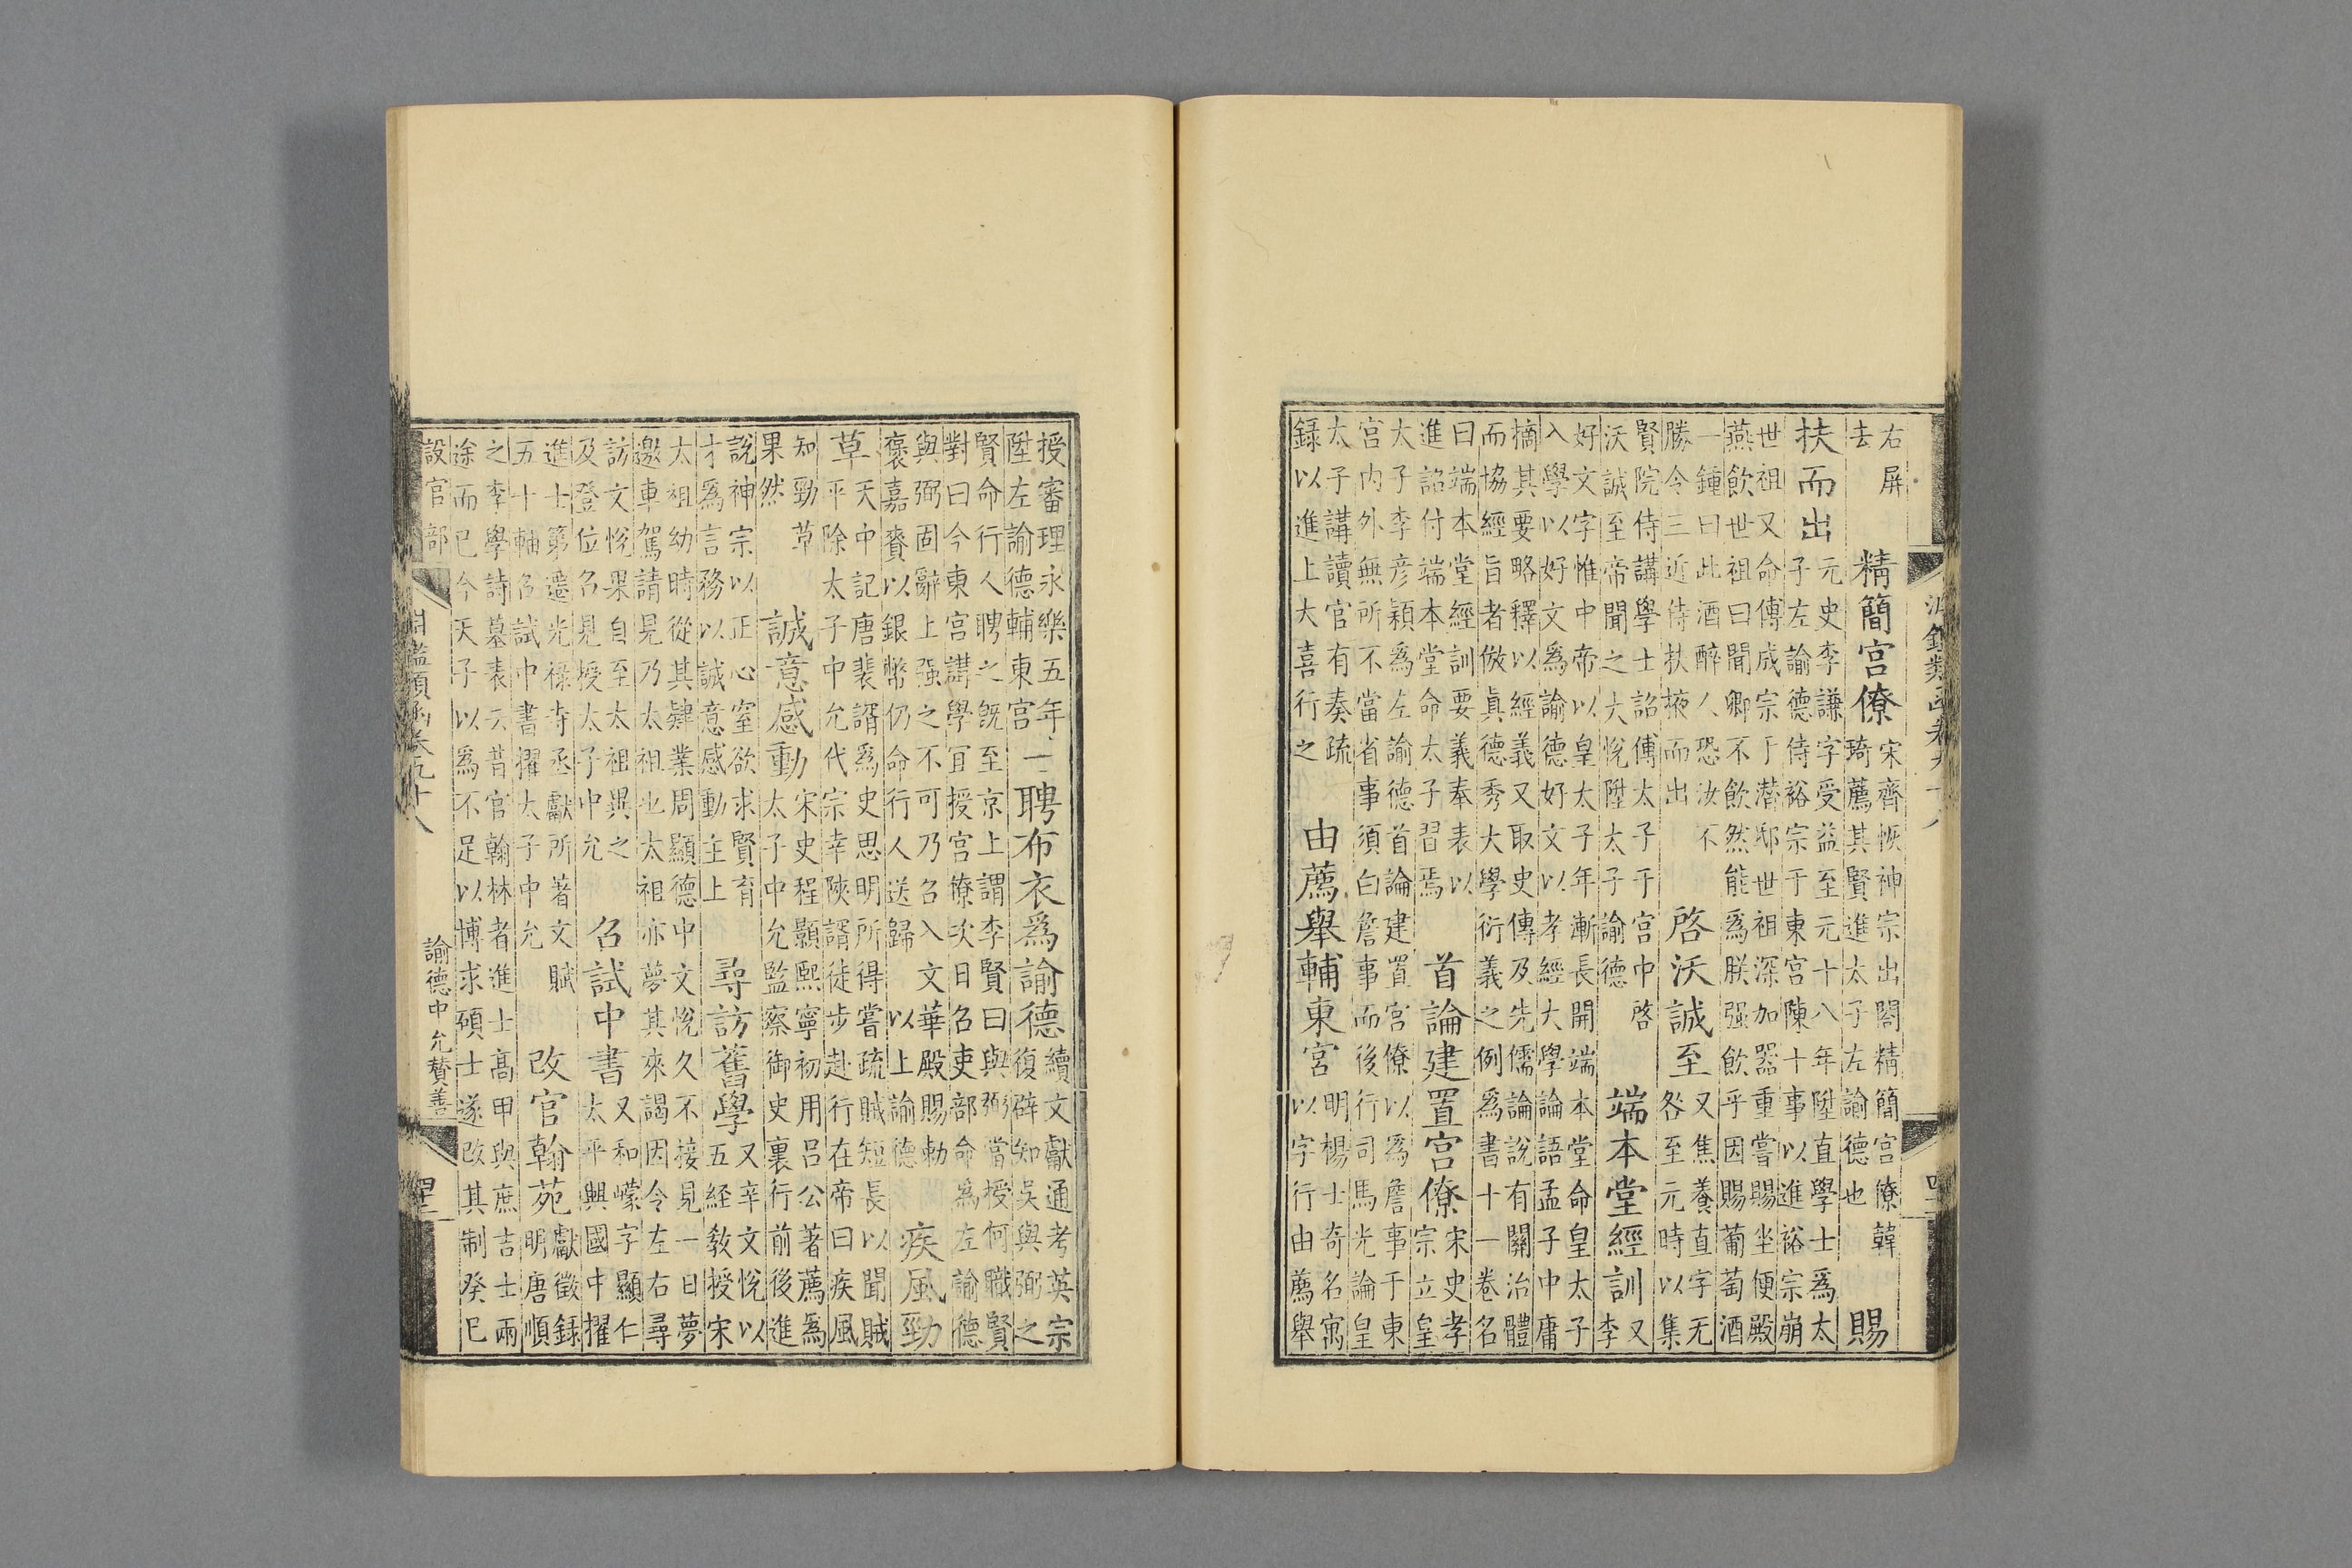 右屏
去
精簡宮僚
宋齊恢神宗出閣精簡宮僚韓
琦薦其賢進太子左諭德也
賜
扶而出
元史李謙字受益至元十八年陞直學士爲太
子左諭德侍裕宗于東宮陳十事以進裕宗崩
世祖又命傅成宗于潛邸世祖深加器重嘗賜坐便殿
燕飲世祖曰聞卿不飲然能爲朕强飲乎因賜葡萄酒
一鍾曰此酒醉人恐汝不
勝令三近侍扶掖而出
啓沃誠至
又焦養直字无
咎至元時以集
賢院侍講學士詔傅太子于宮中啓
沃誠至帝聞之大悅陞太子諭德
端本堂經訓
又
李
好文字惟中帝以皇太子年漸長開端本堂命皇太子
入學以好文爲諭德好文以孝經大學論語孟子中庸
摘其要略釋以經義又取史傳及先儒論說有關治體
而協經旨者倣眞德秀大學衍義之例爲書十一卷名
曰端本堂經訓要義奉表以
進詔付端本堂命太子習焉
首論建置宮僚
宋史孝
宗立皇
大子李彥穎爲左諭德首論建置宮僚以爲詹事于東
宮内外無所不當省事須白詹事而後行司馬光論皇
太子講讀官有奏疏
錄以進上大喜行之
由薦舉輔東宮
明楊士奇名寓
以字行由薦舉
授審理永樂五年
陞左諭德輔東宮
聘布衣爲諭德
續文獻通考英宗
復辟知吳與弼之
賢命行人聘之旣至京上謂李賢曰與弼當授何職賢
對曰今東宮講學宜授宮僚次日召吏部命爲左諭德
與弼固辭上强之不可乃召入文華殿賜勅
褒嘉賚以銀幣仍命行人送歸 以上諭德
疾風勁
草
天中記唐裴諝爲史思明所得嘗疏賊短長以聞賊
平除太子中允代宗幸陝諝徒步赴行在帝曰疾風
知勁草
果然
誠意感動
宋史程顥熙寧初用呂公著薦爲
太子中允監察御史裏行前後進
說神宗以正心窒欲求賢育
才爲言務以誠意感動主上
尋訪舊學
又辛文悅以
五經敎授宋
太祖幼時從其肄業周顯德中文悅久不接見一日夢
邀車駕請見乃太祖也太祖亦夢其來謁因令左右尋
訪文悅果自至太祖異之
及登位召見授太子中允
召試中書
又和㠓字顯仁
太平興國中擢
進士第遷光祿寺丞獻所著文賦
五十軸召試中書擢太子中允
改官翰苑
獻徵錄
明唐順
之李學詩墓表云昔官翰林者進士高甲與庶吉士兩
途而已今天子以爲不足以博求碩士遂改其制癸巳
設官部
諭德中允贊善